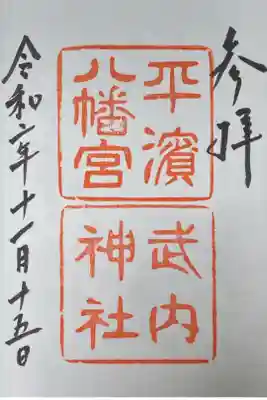 参拝
平濱
八幡宮
武内
神社
令和六年十一月十五日